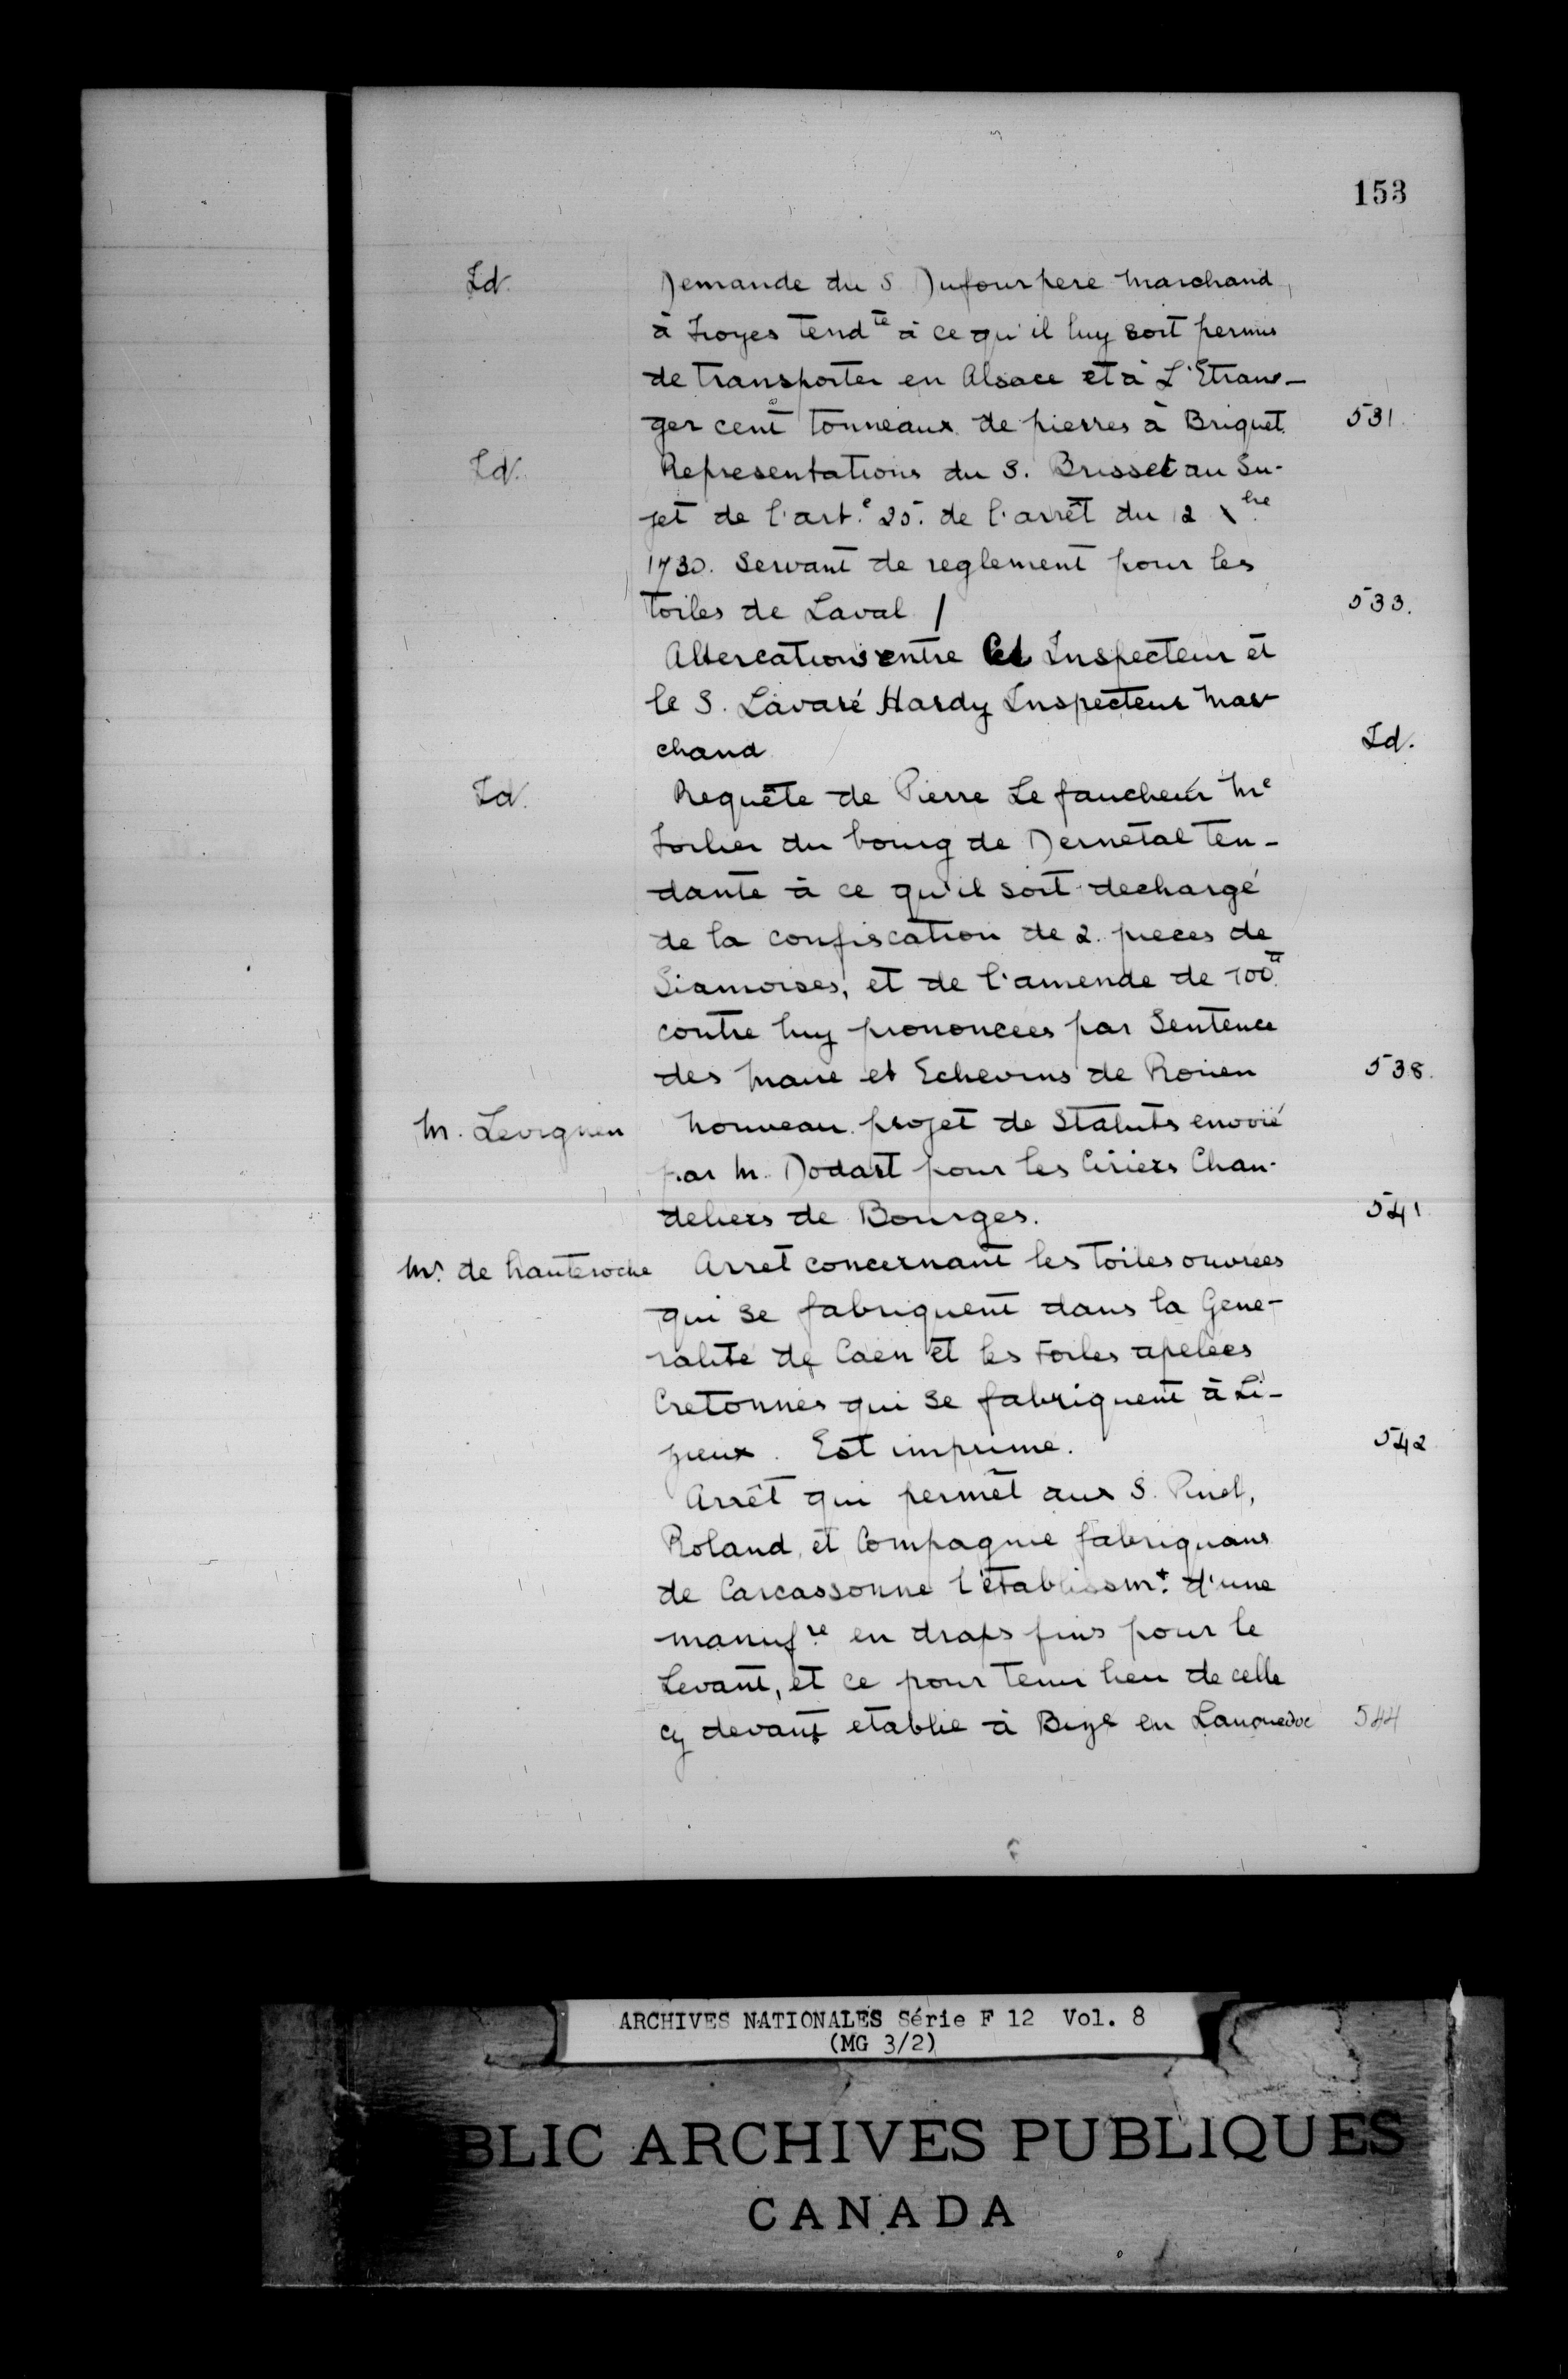 153
Id. Demande du S Dufour pere Marchand
à Troyes tend.te à ce qu'il luy soit permis
de transporter en Alsace et à L'Etran-
ger cent tonneaux de pierres à Briquet. 531.
Id. Representations du S. Brisset au Su-
jet de l'art.e 25. de l'arrêt du 12 Xbre
1730. Servant de reglement pour les
toiles de Laval / 533.
Altercations entre Cet Inspecteur et
le S. Lavaré Hardy Inspecteur Mar-
chand Id.
Id. Requête de Pierre Le faucheur Me
Toilier du bourg de Dernetal ten-
dante à ce qu'il soit dechargé
de la confiscation de 2. pieces de
Siamoises, et de l'amende de 100.tt
contre luy prononcées par Sentence
des Maire et Echevins de Roüen 538.
M. Levignen Nouveau projet de Statuts envoié
par M. Dodart pour les Ciriers Chan-
deliers de Bourges. 541
Mr. de hauteroche Arret concernant les toiles ouvrées
qui se fabriquent dans la Gene-
ralité de Caen et les toiles apelées
Cretonnes qui se fabriquent à Li-
zieux. Est imprimé. 542
Arrêt qui permêt aux S. Pinel,
Roland, et Compagnie fabriquans
de Carcassonne l'établissmt. d'une
manuf.re en draps fins pour le
Levant, et ce pour tenir lieu de celle
cy devant etablie à Bize en Languedoc 544
ARCHIVES NATIONALES Série F 12 Vol. 8
(MG 3/2)
BLIC ARCHIVES PUBLIQUES
CANADA